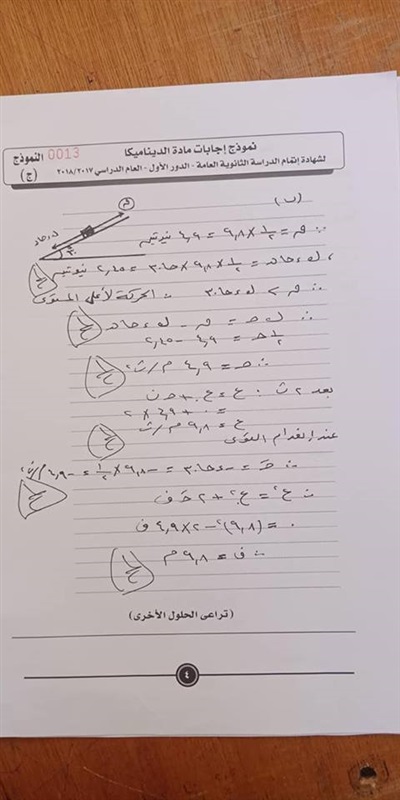 نموذج إجابات مادة الديناميكا
لشهادة إتمام الدراسة الثانوية العامة - الدور الأول - العام الدراسي ٢٠١٨/٢٠١٧
0013 النموذج
(ج)
(ب)
∵ م = ١/٢ × ٩,٨ = ٤,٩ نيوتن
، ك ء حاه = ١/٢ × ٩,٨ × حا ٣٠ = ٢,٤٥ نيوتن
∵ م > ك ء حا ٣٠ ∴ الحركة لأعلى المستوى
∴ ك حـ = م - ك ء حاه
١/٢ حـ = ٤,٩ - ٢,٤٥
∴ حـ = ٤,٩ م/ث²
بعد ٢ ث : ع = ع. + حـ ن
= ٠ + ٤,٩ × ٢
ع = ٩,٨ م/ث
عند انعدام القوى
∴ حـَ = - ء حا ٣٠ = - ٩,٨ × ١/٢ = - ٤,٩ م/ث²
∵ ع² = ع.² + ٢ حـَ ف
٠ = (٩,٨)² - ٢ × ٤,٩ ف
∴ ف = ٩,٨ م
(تراعى الحلول الأخرى)
٤